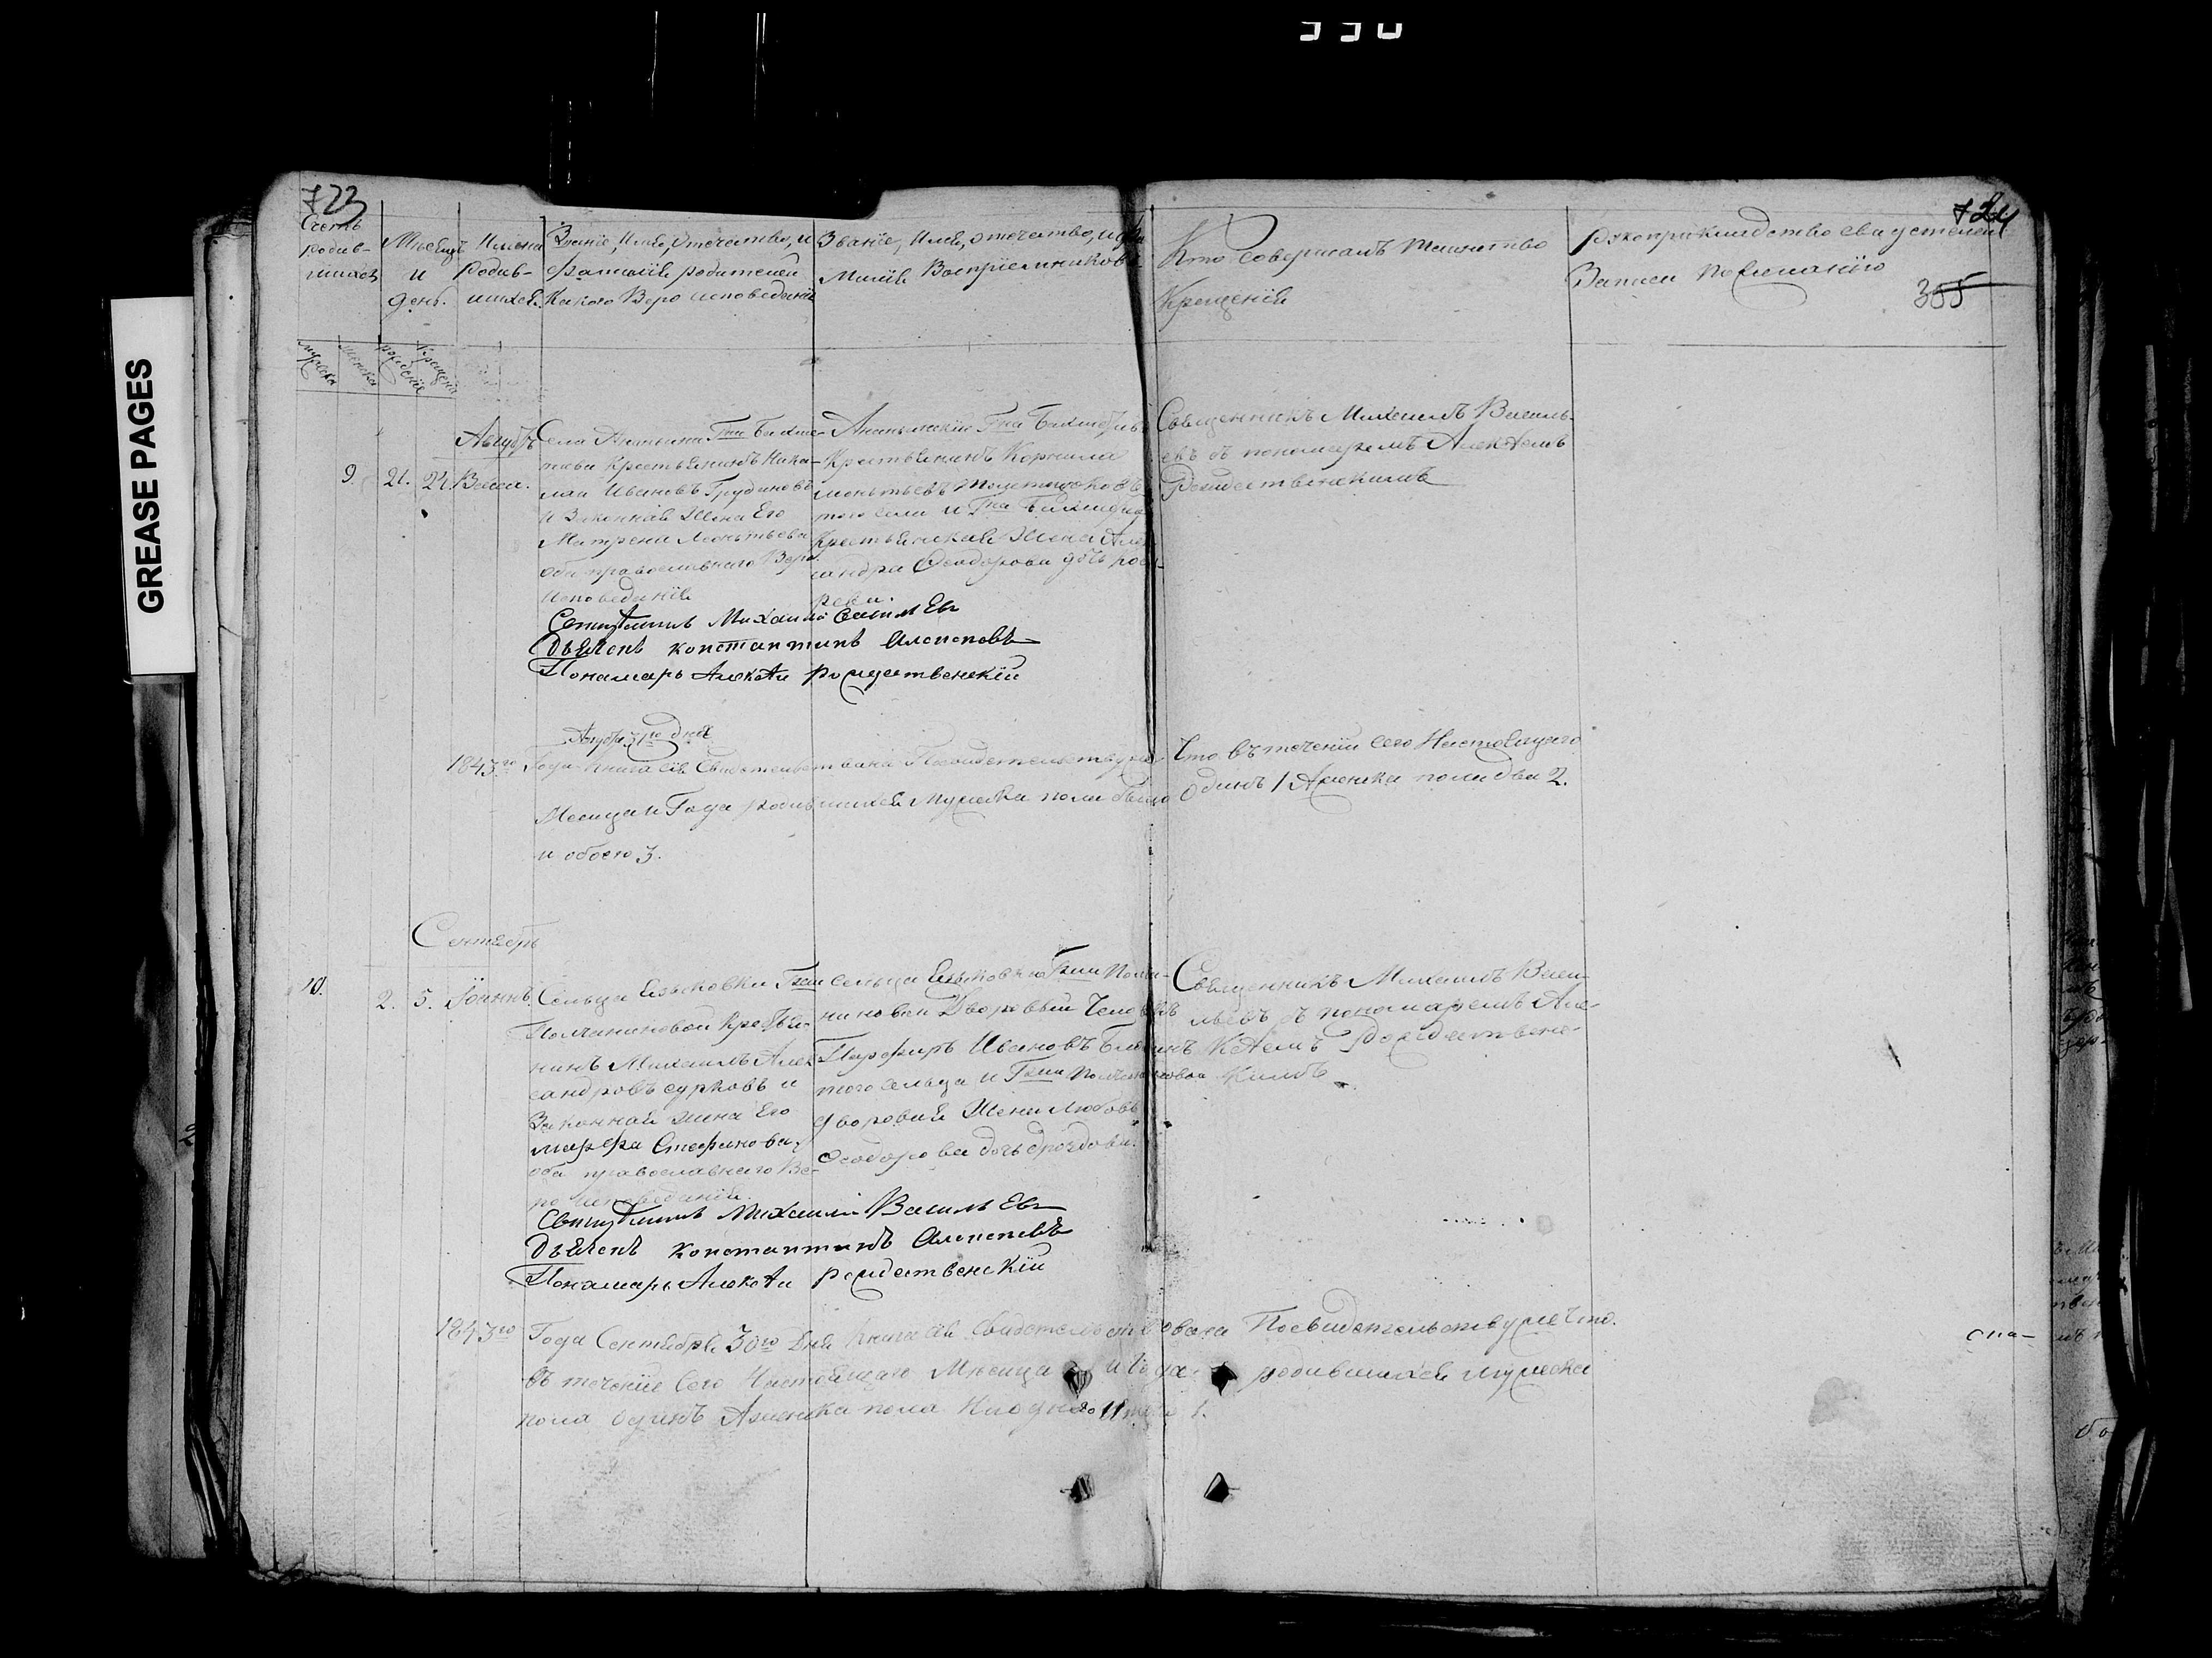 GREASE PAGES
723
Счетъ родив-шихся
Мѣсяцъ и день.
Имена Родив-шихся.
Званіе, Имя, Отечество, и Фамилія родителей Какого Вероисповеданія
Званіе, Имя, отечество, и фа-милія Воспріемниковъ
Кто Совершалъ таинство Крещенія
Рукоприкладство свидетелей Записи по желанію
724
355
мужеска
женска
рожденіе
крещеніе
Августъ
9. 21. 24. Васса.
Села Ананьина Гна Бахме-
тева Крестьянинъ Нико-
лаи Ивановъ Грудиновъ
и Законная Жена Его
Матрена Леонтьева
оба православнаго Веро
исповеданія
Крестьянинъ Корнила
того села и Гна
Крестьянская Жена Алек-
сандра Феодорова дочь
Священникъ Михаилъ Василь-
евъ съ пономаремъ Алексѣемъ
Рождественскимъ
Священникъ Михаилъ Васильевъ
Дьяченъ Константинъ
Пономарь Алексѣи Рождественскіи
Августа 31го дня
1843го Года Книга сія Свидетельствована По свидетельству
Что въ теченіи сего Настоящаго
Месяца и Года родившихся Мужеска пола было
Одинъ 1 Женска пола два 2.
и обоего 3.
Сентябрь
10. 2. 5. Іоаннъ.
Сельца Езыковки Гжи
Полчаниновой Крестья-
нинъ Михаилъ Алек-
сандровъ Сурковъ и
Законная жена Его
Марфа Стефанова,
оба православнаго Ве-
ро исповеданія.
Сельца Езыковки Гжи Полча-
ниновой Дворовый Человекъ
Порфиръ Ивановъ
того Сельца и Гжи Полчаниновой
дворовая Жена Любовь
Феодорова дочь Дроздова.
Священникъ Михаилъ Васи-
льевъ съ пономаремъ Але-
ксѣемъ Рождествене-
кимъ
Священникъ Михаилъ Васильевъ
Дьяченъ Константинъ
Пономарь Алексѣи Рождественскіи
1843го Года Сентября 30го Дня Книга сія Свидетельствована По свидетельству же что.
въ теченіе Сего Настоящаго Месяца и Года родившихся мужеска
пола одинъ Женска пола Ни одного Итого 1.